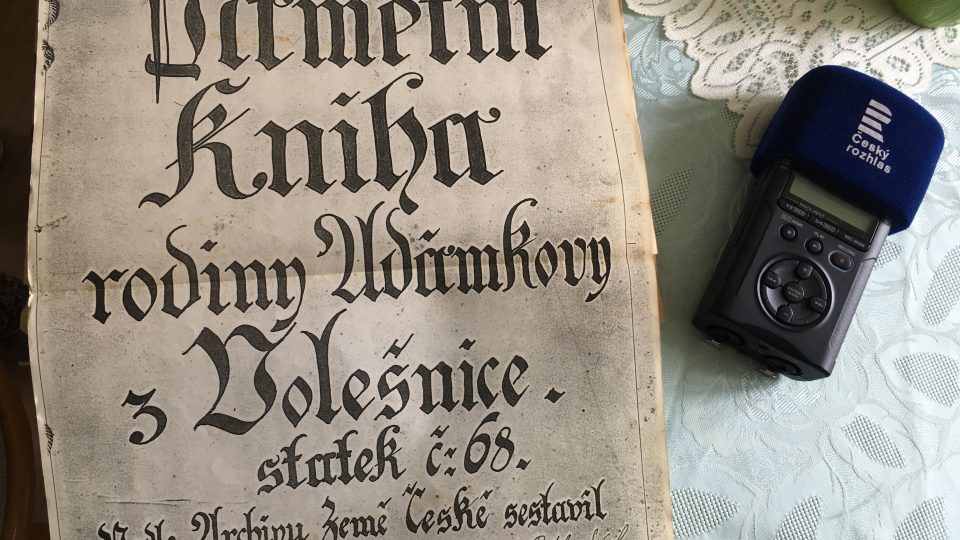 Pamětní
Kniha
rodiny Adámkovy
z Volešnice.
statek č: 68.
dle Archivu Země České sestavil
Český
rozhlas
PLAY